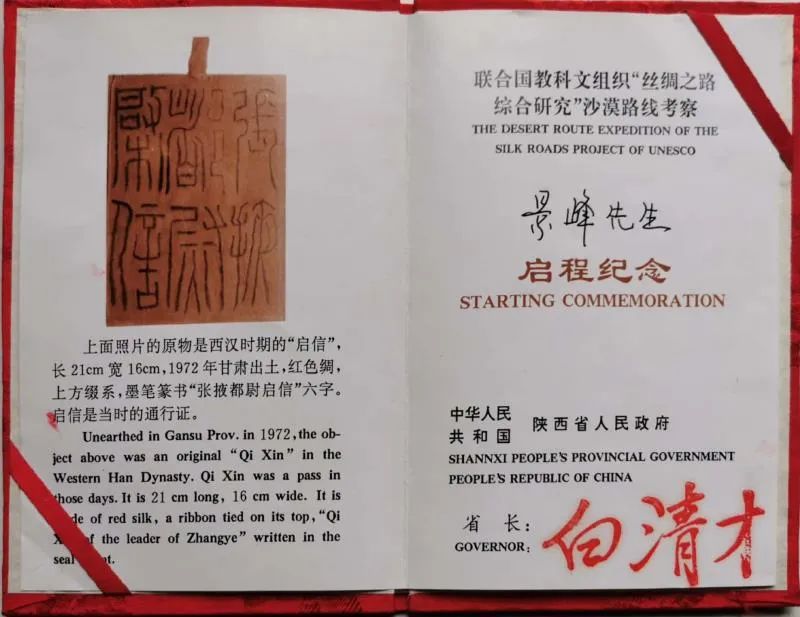 張掖
都尉
棨信
上面照片的原物是西汉时期的“启信”,
长21cm宽16cm,1972年甘肃出土,红色绸,
上方缀系,墨笔篆书“张掖都尉启信”六字。
启信是当时的通行证。
Unearthed in Gansu Prov. in 1972, the ob-
ject above was an original “Qi Xin” in the
Western Han Dynasty. Qi Xin was a pass in
those days. It is 21 cm long, 16 cm wide. It is
of red silk, a ribbon tied on its top, “Qi
of the leader of Zhangye” written in the
seal
联合国教科文组织“丝绸之路
综合研究”沙漠路线考察
THE DESERT ROUTE EXPEDITION OF THE
SILK ROADS PROJECT OF UNESCO
景峰先生
启程纪念
STARTING COMMEMORATION
中华人民
共和国 陕西省人民政府
SHANNXI PEOPLE'S PROVINCIAL GOVERNMENT
PEOPLE'S REPUBLIC OF CHINA
省长:
GOVERNOR:
白清才